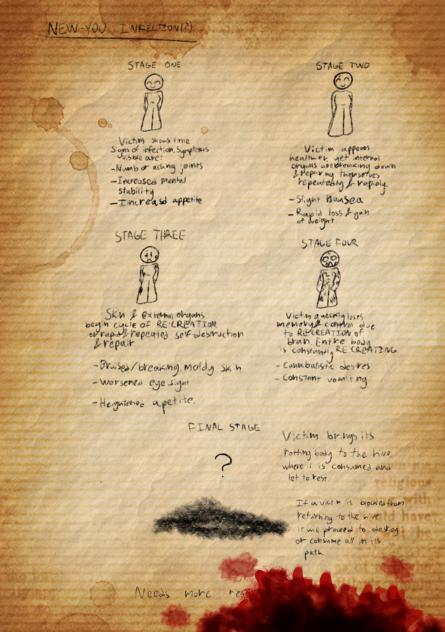 NEW-YOU INFECTION(?)
STAGE ONE
Victim shows
Signs of infection. Symptoms
visible are:
- Numb or aching joints
- Increased mental
stability
- Increased appetite
STAGE TWO
Victim appears
healthier yet internal
organs are breaking down
& repairing themselves
repeatedly & rapidly.
- Slight Nausea
- Rapid loss & gain
of weight
STAGE THREE
Skin & external organs
begin cycle of RE:CREATION
or rapid/repeated self destruction
& repair
- Bruised/breaking moldy skin
- Worsened eye sight
- Heightened apetite.
STAGE FOUR
Victim loses
memory & control due
to RE:CREATION of
brain. Entire body
is constantly RE:CREATING
- Cannibalistic desires
- Constant vomiting
FINAL STAGE
?
Victim brings its
rotting body to the hive,
where it is consumed and
to rest
If a victim is blocked from
returning to the hive
it will proceed to destroy
or consume all in its
path.
Needs more